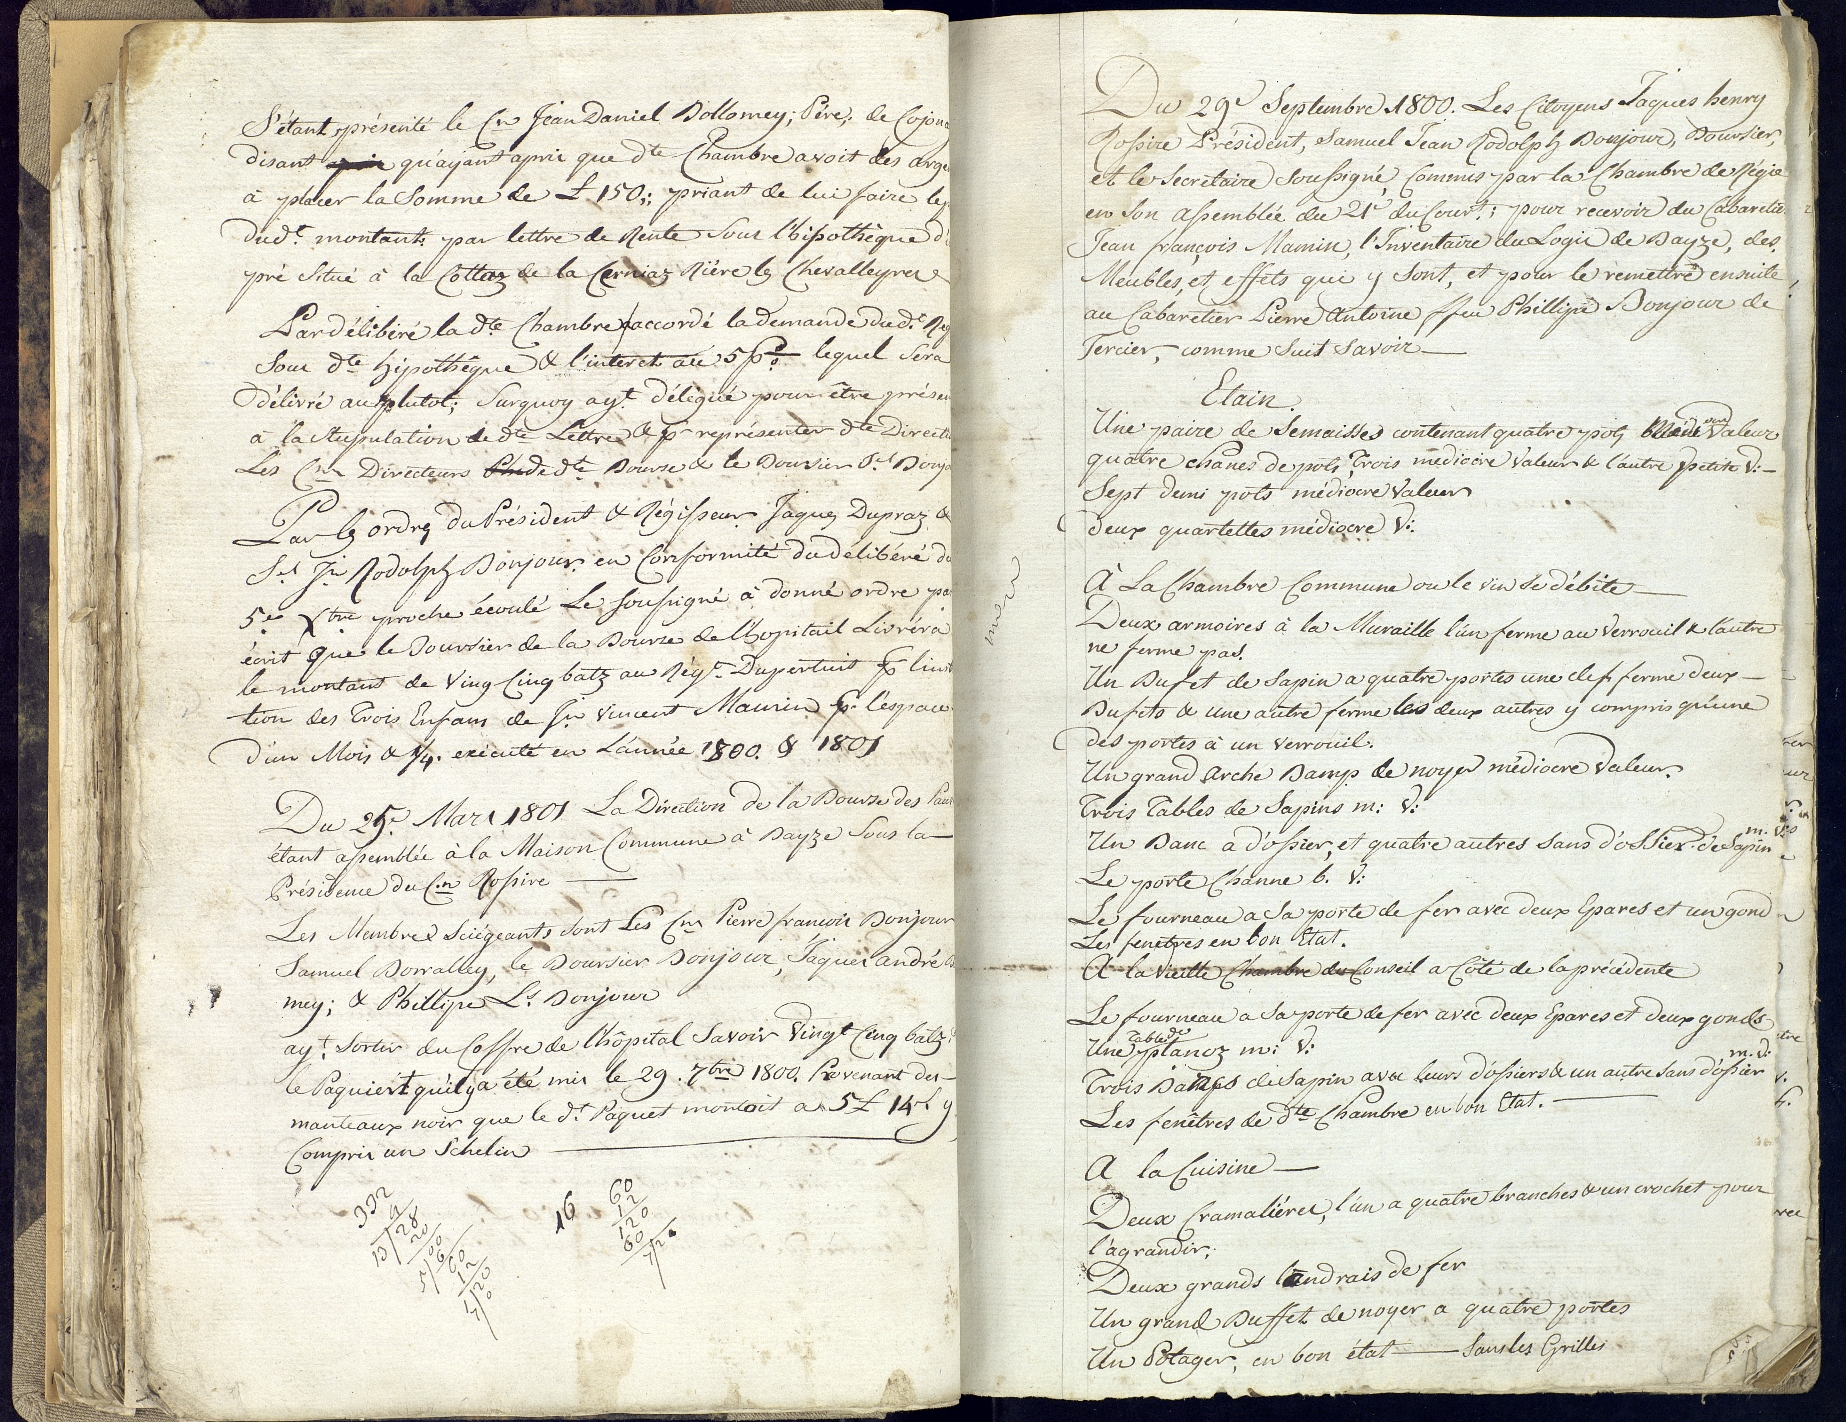 S'étant présenté le Cn Jean Daniel Dollomey; Père; de Cojon
disant qu'ayant apris que dte Chambre avoit des arge
à placer la Somme de £ 150:; priant de lui faire le p
dudt. montant; par lettre de Rente Sous l'hipothèque d
pré Situé à la Cottaz de la Cerniaz Riére les Chevalleyres
Par délibéré la dte Chambre accordé la demande dudt. Reg
Sous dte hipothéque & l'interet au 5 p% lequel Sera
Délivré au plutot; Surquoy ayt. délégué pour être présen
à la Stupulation de dte Lettre & pr représenter dte Directi
Les Cns Directeurs de dte Bourse & le Boursier Sl Bonjo
Par les ordres du Président & Régisseur Jaques Dupraz &
Sel Jn Rodolph Bonjour en Conformité du délibéré du
5e Xbre proche écoulé Le Soussigné à donné ordre par
écrit que le Boursier de la Bourse de l'hopitail Livréra
le montant de Ving Cinq batz au Régr. Dupertuit pr linst
tion des Trois Enfans de Jn Vincent Mamin pr. l'espace
d'un Mois & 3/4. exécuté en L'année 1800. & 1801
Du 25e. Mars 1801 La Direction de la Bourse des Pauv
étant assemblée à la Maison Commune à Bayze Sous la
Présidence du Cn Rossire
Les Membres Sciégeants sont Les Cns Pierre françois Bonjour
Samuel Dorralley, le Boursier Bonjour, Jaques andré D
mey; & Phillipe Ls. Bonjour
ayt. Sortir du Coffre de l'hôpital Savoir Vingt Cinq batz
le Paquiert qu'il y a été mis le 29. 7bre 1800. Provenant des
manteaux noir que le dt Paquet montoit a 5£ 14s. y
Compris un Schelin
332
9
13/28
20
5/00
6
60
12
7/20
16
60
12
120
60
7/2
Du 29e Septembre 1800. Les Citoyens Jaques henry
Rossire Président, Samuel Jean Rodolph Bonjour, Boursier,
et le Secrétaire Soussigné, Commis par la Chambre de Régie
en Son assemblée du 21e du Court.; pour recevoir du Cabaretier
Jean françois Mamin, l'Inventaire du Logis de Bayze, des
Meubles, et effets qui y Sont, et pour le remettre ensuite
au Cabaretier Pierre Antoine ffeu Phillipe Bonjour de
Tercier, comme Suit Savoir
Etain.
Une paire de Semaisses contenant quatre pots Valeur
quatre chanes de pots, Trois médiocre Valeur & l'autre petite V:
Sept demi pots médiocre Valeur
deux quartettes médiocre V:
À La Chambre Commune ou le vin se débite
Deux armoires à la Muraille l'un ferme au Verrouil & l'autre
ne ferme pas.
Un Bufet de Sapin a quatre portes une clef ferme deux
Bufets & une autre ferme les deux autres y compris qu'une
des portes à un Verrouil.
Un grand Arche Bamp de noyer médiocre Valeur.
Trois Tables de Sapins m: V:
Un Banc a dossier, et quatre autres Sans dossier de Sapin m. V:
Le porte Channe b. V:
Le fourneau a Sa porte de fer avec deux Epares et un gond
Les fenetres en bon Etat.
À la vieille Chambre du Conseil a Côté de la précédente
Le fourneau a Sa porte de fer avec deux Epares et deux gonds
Une Table de planoz m: V:
Trois Bancs de Sapin avec leurs dossiers & un autre Sans dossier m. V:
Les fenêtres de dte Chambre en bon Etat.
A la Cuisine
Deux Cramaliéres, l'un a quatre branches & un crochet pour
l'agrandir;
Deux grands landrais de fer
Un grand Buffet de noyer a quatre portes
Un Potager, en bon état Sans les Grilles